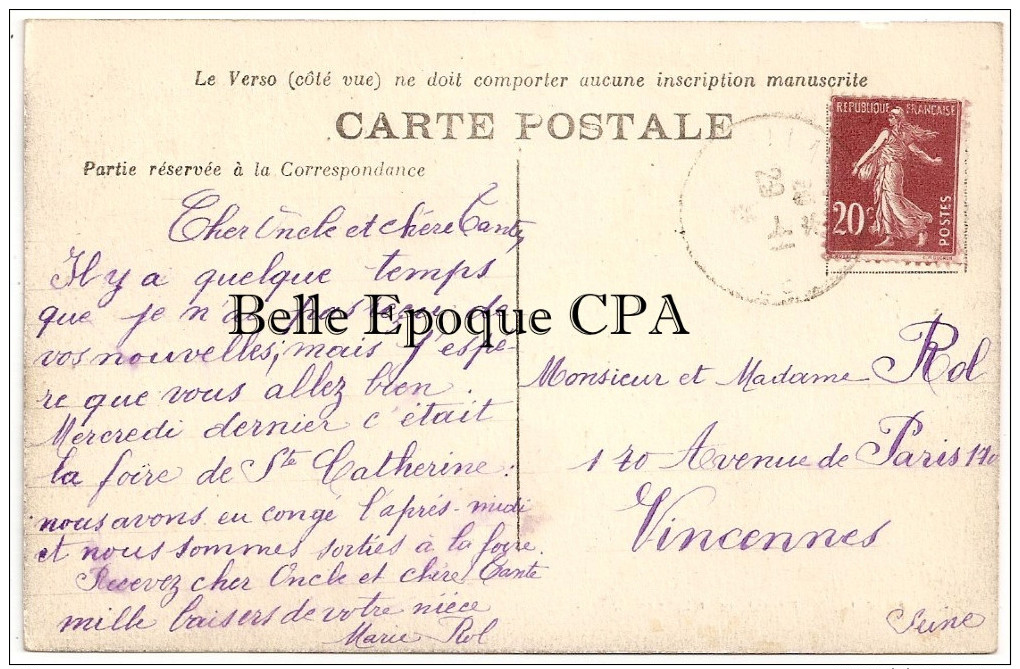 Le Verso (côté vue) ne doit comporter aucune inscription manuscrite
CARTE POSTALE
Partie réservée à la Correspondance
REPUBLIQUE FRANÇAISE
20c
POSTES
29
Cher Oncle et chère Tante,
Il y a quelque temps
que je n'ai pas reçu de
vos nouvelles; mais j'espè-
re que vous allez bien.
Mercredi dernier c'était
la foire de Ste Catherine:
nous avons eu congé l'après-midi
et nous sommes sorties à la foire.
Recevez cher Oncle et chère Tante
mille baisers de votre nièce
Marie Rol
Belle Epoque CPA
Monsieur et Madame Rol
140 Avenue de Paris 140
Vincennes
Seine